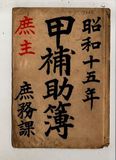 昭和十五年
甲補助簿
庶主
庶務課